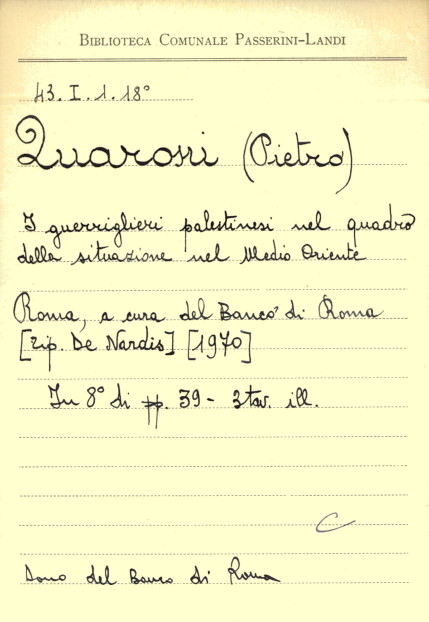 BIBLIOTECA COMUNALE PASSERINI-LANDI
43. I. 1. 18°
Quaroni (Pietro)
I guerriglieri palestinesi nel quadro
della situazione nel Medio Oriente
Roma, a cura del Banco di Roma
[tip. De Nardis] [1970]
In 8° di pp. 39 - 3 tav. ill.
C
Dono del Banco di Roma